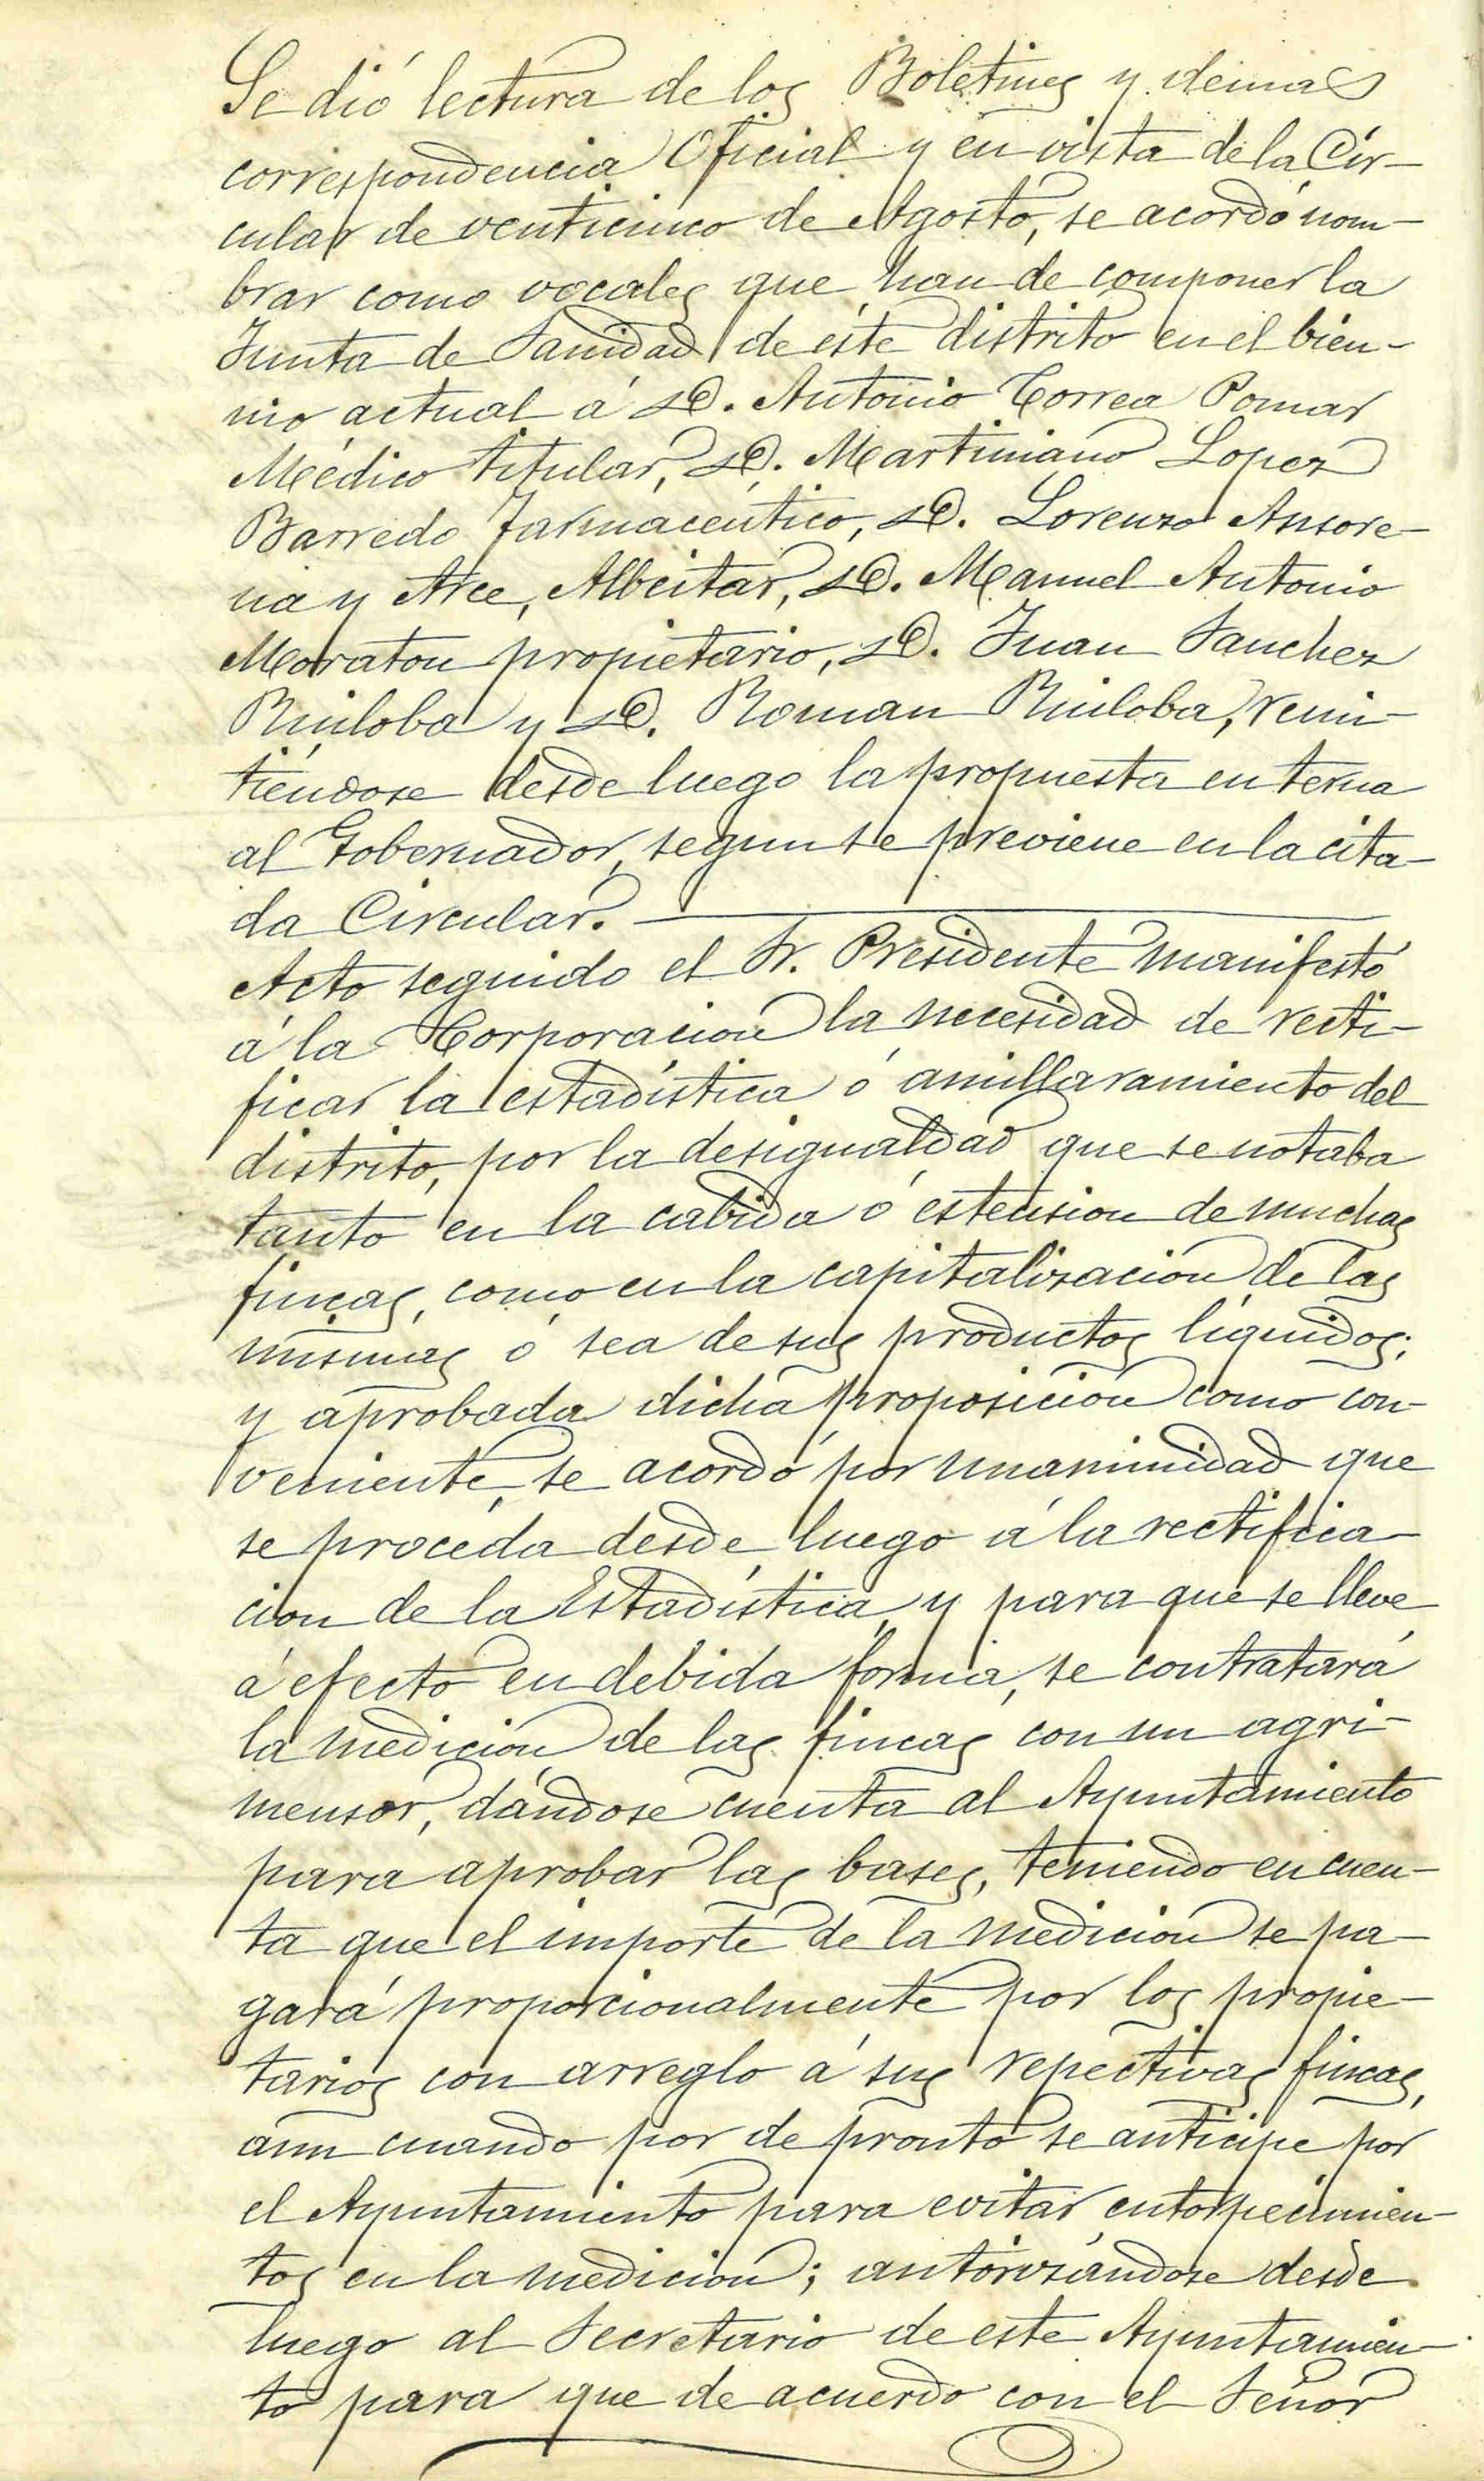 Se dió lectura de los Boletines y demas
correspondencia Oficial y en vista de la Cir-
cular de venticinco de Agosto, se acordó nom-
brar como vocales que han de componer la
Junta de Sanidad de éste distrito en el bien-
nio actual á D. Antonio Correa Pomar
Médico titular, D. Martiniano Lopez
Barredo farmaceútico, D. Lorenzo Ansore-
na y Arce, Albeitar, D. Manuel Antonio
Moraton propietario, D. Juan Sanchez
Ruiloba y D. Roman Ruiloba, remi-
tiendose desde luego la propuesta en terna
al Gobernador, segun se previene en la cita-
da Circular.
Acto seguido el Sr. Presidente manifestó
á la Corporacion la necesidad de recti-
ficar la estadística ó amillaramiento del
distrito, por la desigualdad que se notaba
tanto en la cabida ó estension de muchas
fincas, como en la capitalizacion de las
mismas ó sea de sus productos líquidos;
y aprobada dicha proposicion como con-
veniente, se acordó por unanimidad que
se proceda desde luego á la rectifica-
cion de la Estadística, y para que se lleve
á efecto en debida forma, se contratará
la medicion de las fincas con un agri-
mensor, dándose cuenta al Ayuntamiento
para aprobar las bases, teniendo en cuen-
ta que el importe de la medicion se pa-
gará proporcionalmente por los propie-
tarios con arreglo á sus repectivas fincas,
aun cuando por de pronto se anticipe por
el Ayuntamiento para evitar entorpecimien-
tos en la medicion; autorizándose desde
luego al Secretario de este Ayuntamien-
to para que de acuerdo con el Señor